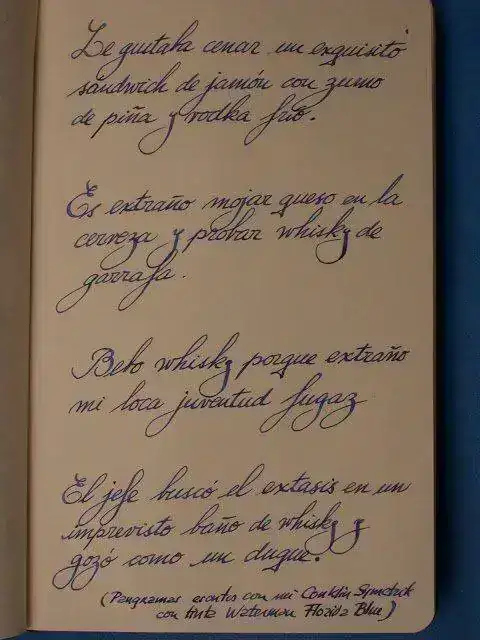 Le gustaba cenar un exquisito
sándwich de jamón con zumo
de piña y vodka frío.
Es extraño mojar queso en la
cerveza y probar whisky de
garrafa.
Bebo whisky porque extraño
mi loca juventud fugaz
El jefe buscó el extasis en un
imprevisto baño de whisky y
gozó como un duque.
(Pangramas escritos con mi Conklin Symetrik
con tinta Waterman Florida Blue)